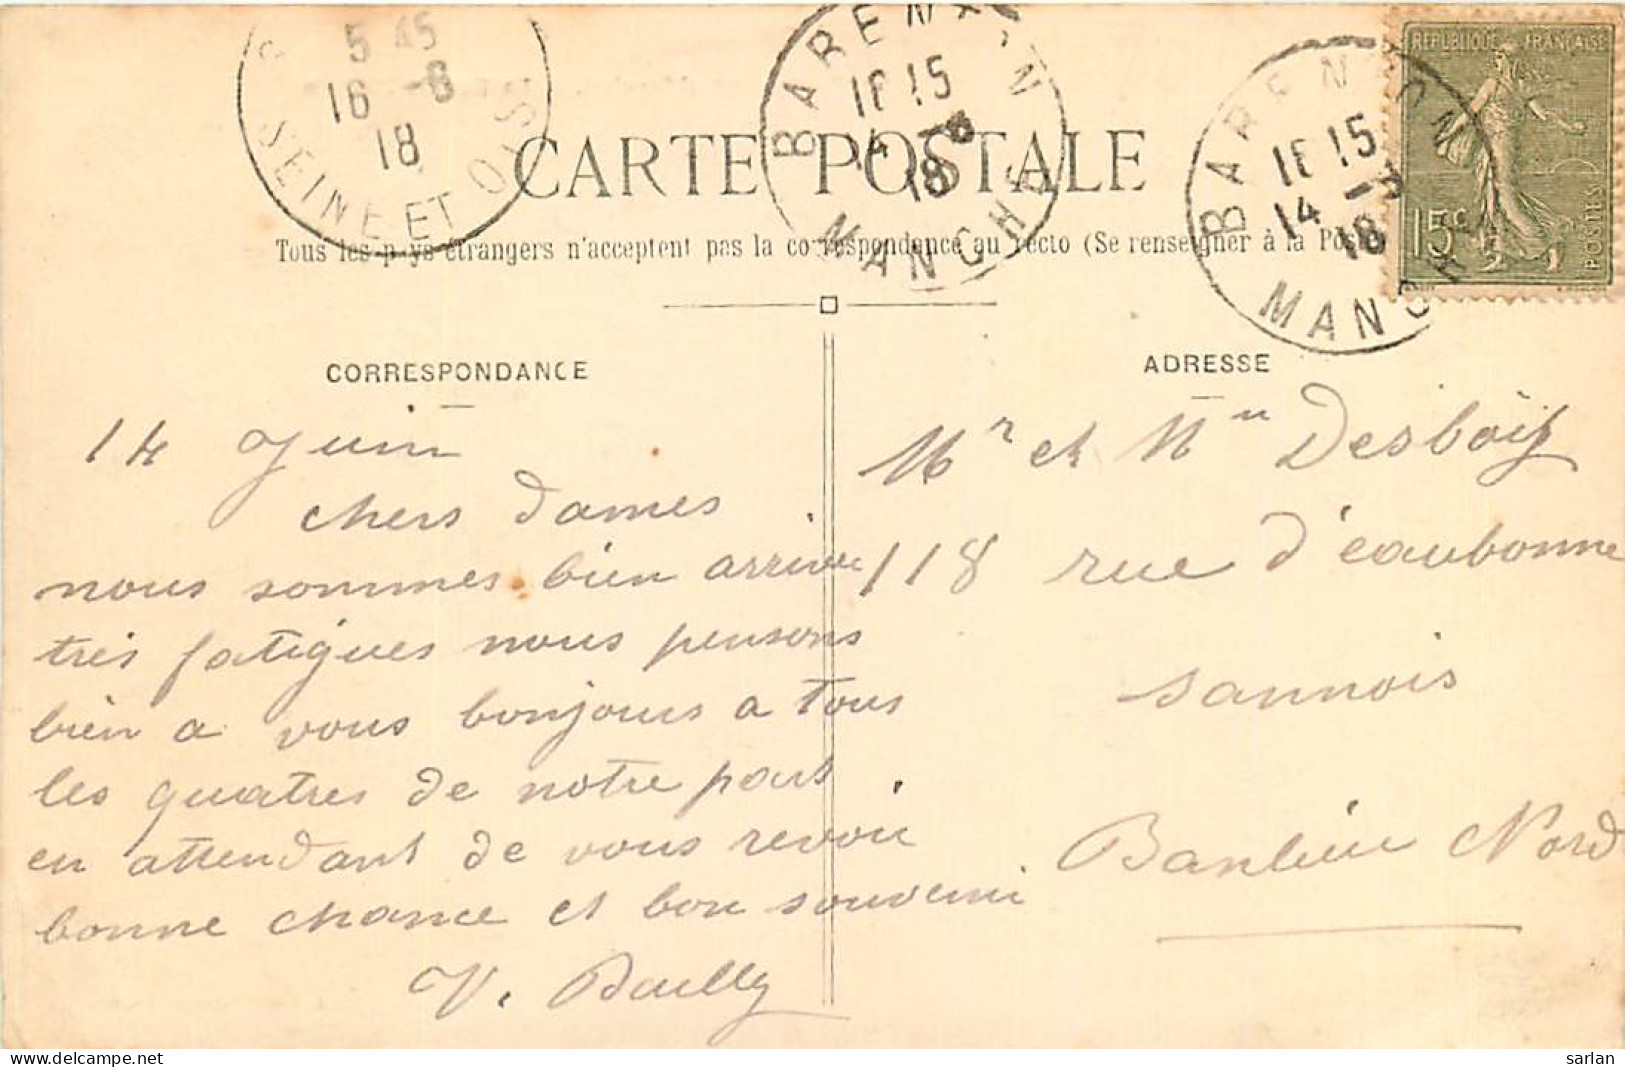 5 45
16 -6
18
SEINE ET OISE
BARENTON
16 15
14 -6
18
MANCHE
BARENTON
16 15
14 -6
18
MANCHE
REPUBLIQUE FRANÇAISE
15c
POSTES
CARTE POSTALE
Tous les pays étrangers n'acceptent pas la correspondance au recto (Se renseigner à la Poste
CORRESPONDANCE
14 Juin
chers dames
nous sommes bien arrivée
très fatigues nous pensons
bien a vous bonjours a tous
les quatres de notre part
en attendant de vous revoir
bonne chance et bon souvenir
V. Bailly
ADRESSE
Mr et Mm Desbois
118 rue d'éaubonne
Sannois
Banlieue Nord
sarlan